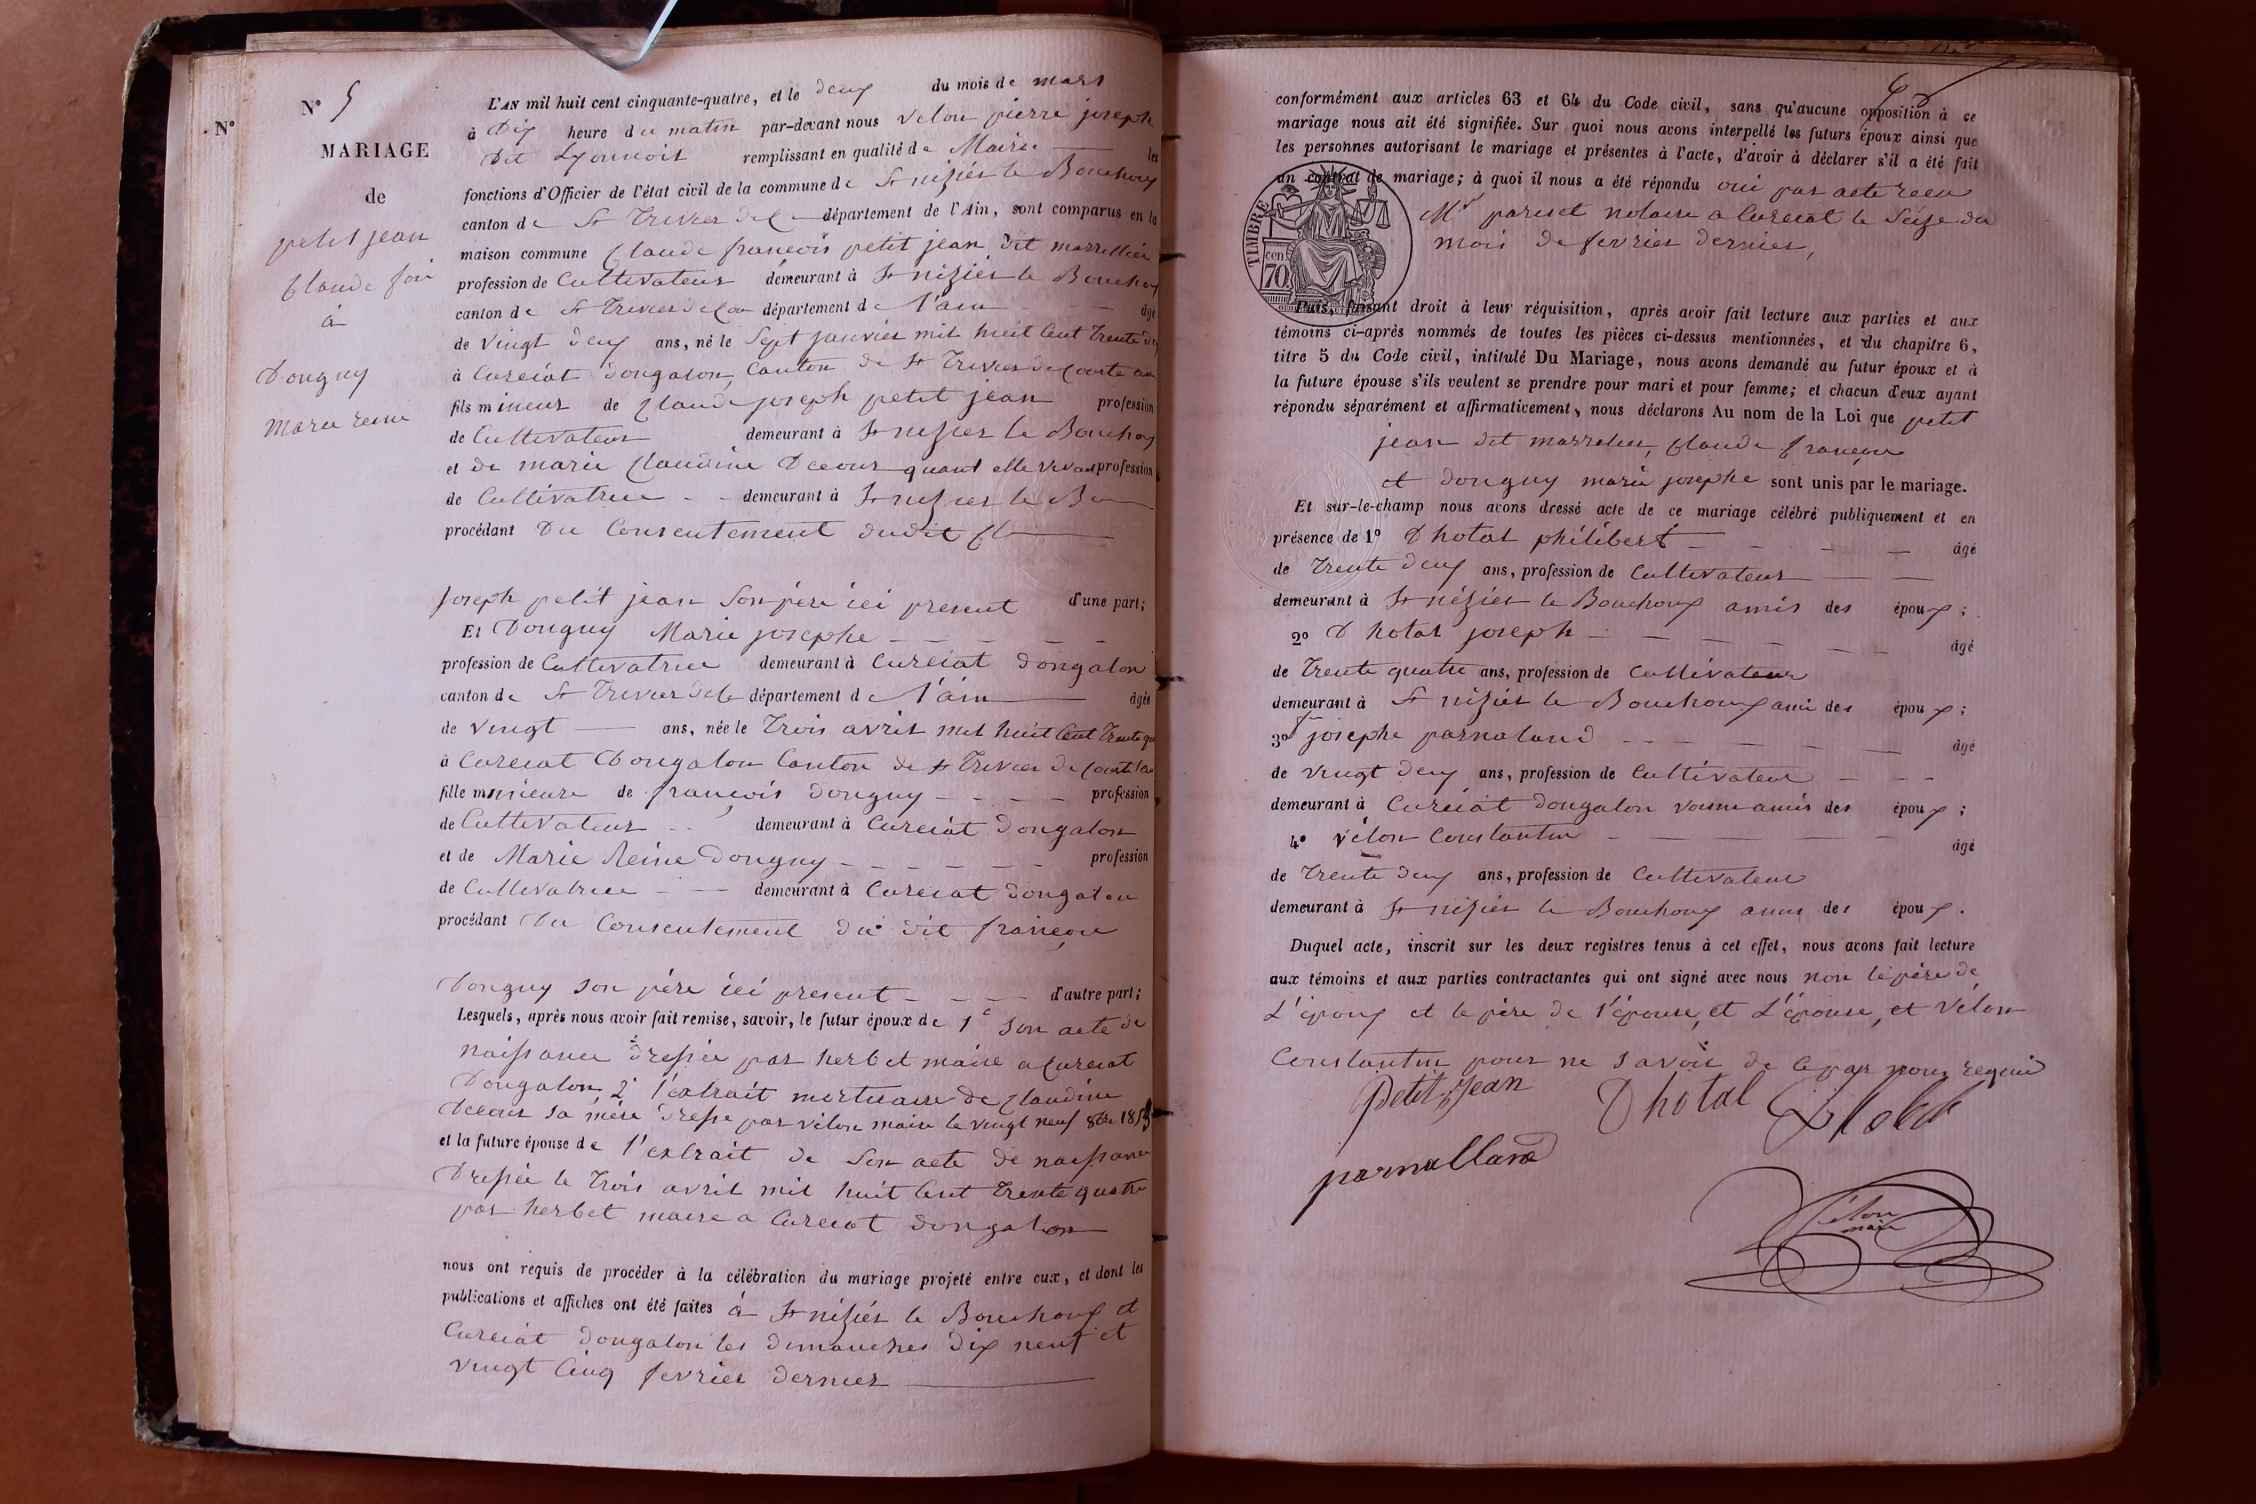 N° 5
N°
MARIAGE
de
petit jean
Claude foi
à
Donguy
marie reine
L'AN mil huit cent cinquante-quatre, et le deux du mois de mars
à Dix heure du matin par-devant nous velon pierre joseph
Dit Lyonnois remplissant en qualité de Maire les
fonctions d'Officier de l'état civil de la commune de St nizier le Bouchoux
canton de St Trivier de C département de l'Ain, sont comparus en la
maison commune Claude françois petit jean dit marrellier
profession de Cultivateur demeurant à St nizier le Bouchoux
canton de St Trivier de Cou département de l'ain âgé
de vingt deux ans, né le Sept janvier mil huit Cent Trente deux
à Curciat dongalon, Canton de St Trivier de Courte
fils mineur de Claude joseph petit jean profession
de Cultivateur demeurant à St nizier le Bouchoux
et de marie Claudine Decour quant elle vivai profession
de Cultivatrice demeurant à St nizier le Bou
procédant Du Consentement dudit Cl
joseph petit jean Son père ici present d'une part;
Et Donguy Marie josephe
profession de Cultivatrice demeurant à Curciat dongalon
canton de St Trivier de C département de l'ain âgée
de vingt ans, née le Trois avril mil huit Cent Trente qu
à Curciat Dongalon Canton de St Trivier de Courte
fille mineure de françois donguy profession
de Cultivateur demeurant à Curciat Dongalon
et de Marie Reine Donguy profession
de Cultivatrice demeurant à Curciat dongalon
procédant Du Consentement du dit françois
Donguy son père ici present d'autre part;
Lesquels, après nous avoir fait remise, savoir, le futur époux de 1° Son acte de
naissance dressée par herbet maire a Curciat
Dongalon, 2° l'extrait mortuaire de Claudine
Decour sa mère dressé par vélon maire le vingt neuf 8bre 1853
et la future épouse de l'extrait de Son acte de naissance
Dressée le Trois avril mil huit Cent Trente quatre
par herbet maire a Curciat dongalon
nous ont requis de procéder à la célébration du mariage projeté entre eux, et dont les
publications et affiches ont été faites à St nizier le Bouchoux et
Curciat dongalon les dimanches dix neuf et
vingt Cinq fevrier dernier
conformément aux articles 63 et 64 du Code civil, sans qu'aucune opposition à ce
mariage nous ait été signifiée. Sur quoi nous avons interpellé les futurs époux ainsi que
les personnes autorisant le mariage et présentes à l'acte, d'avoir à déclarer s'il a été fait
un contrat de mariage; à quoi il nous a été répondu oui par acte recu
Mr paruet notaire a Curciat le Seize du
mois de fevrier dernier,
TIMBRE
cen
70
Puis, faisant droit à leur réquisition, après avoir fait lecture aux parties et aux
témoins ci-après nommés de toutes les pièces ci-dessus mentionnées, et du chapitre 6,
titre 5 du Code civil, intitulé Du Mariage, nous avons demandé au futur époux et à
la future épouse s'ils veulent se prendre pour mari et pour femme; et chacun d'eux ayant
répondu séparément et affirmativement, nous déclarons Au nom de la Loi que petit
jean dit marrelier, Claude françois
et donguy marie josephe sont unis par le mariage.
Et sur-le-champ nous avons dressé acte de ce mariage célébré publiquement et en
présence de 1° Dhotal philibert âgé
de Trente deux ans, profession de Cultivateur
demeurant à St nézier le Bouchoux amis des époux;
2° D hotal joseph âgé
de Trente quatre ans, profession de Cultivateur
demeurant à St nizier le Bouchoux ami des époux;
3° josephe parnaland âgé
de vingt deux ans, profession de Cultivateur
demeurant à Curciat dongalon voisin amis des époux;
4° vélon Constantin âgé
de Trente deux ans, profession de Cultivateur
demeurant à St nizier le Bouchoux amis des époux.
Duquel acte, inscrit sur les deux registres tenus à cet effet, nous avons fait lecture
aux témoins et aux parties contractantes qui ont signé avec nous non le père de
L'époux et le père de l'épouse, et L'épouse, et vélon
Constantin pour ne Savoir de ce par nous requis
petit jean Dhotal Dhotal
parnalland
vélon
maire